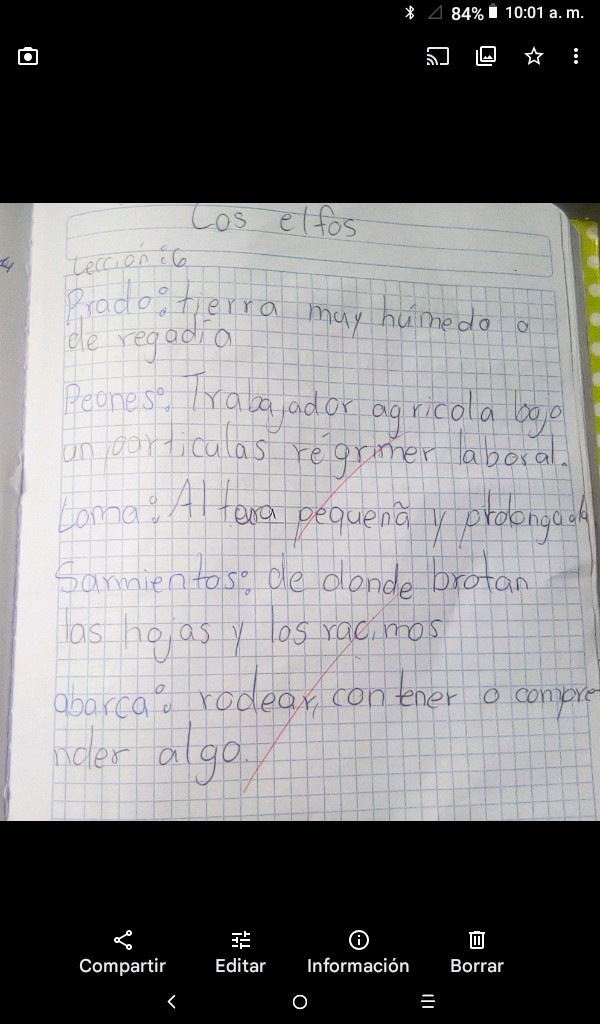 84% 10:01 a. m.
Los elfos
Lección:6
Prado: tierra muy húmeda o
de regadía
Peones: Trabajador agricola bajo
un particulas régrimer laboral.
Loma: Altera pequeñã y prolongada
Sarmientos: de donde brotan
las hojas y los racimos
abarca: rodear, contener o compre
nder algo.
Compartir Editar Información Borrar